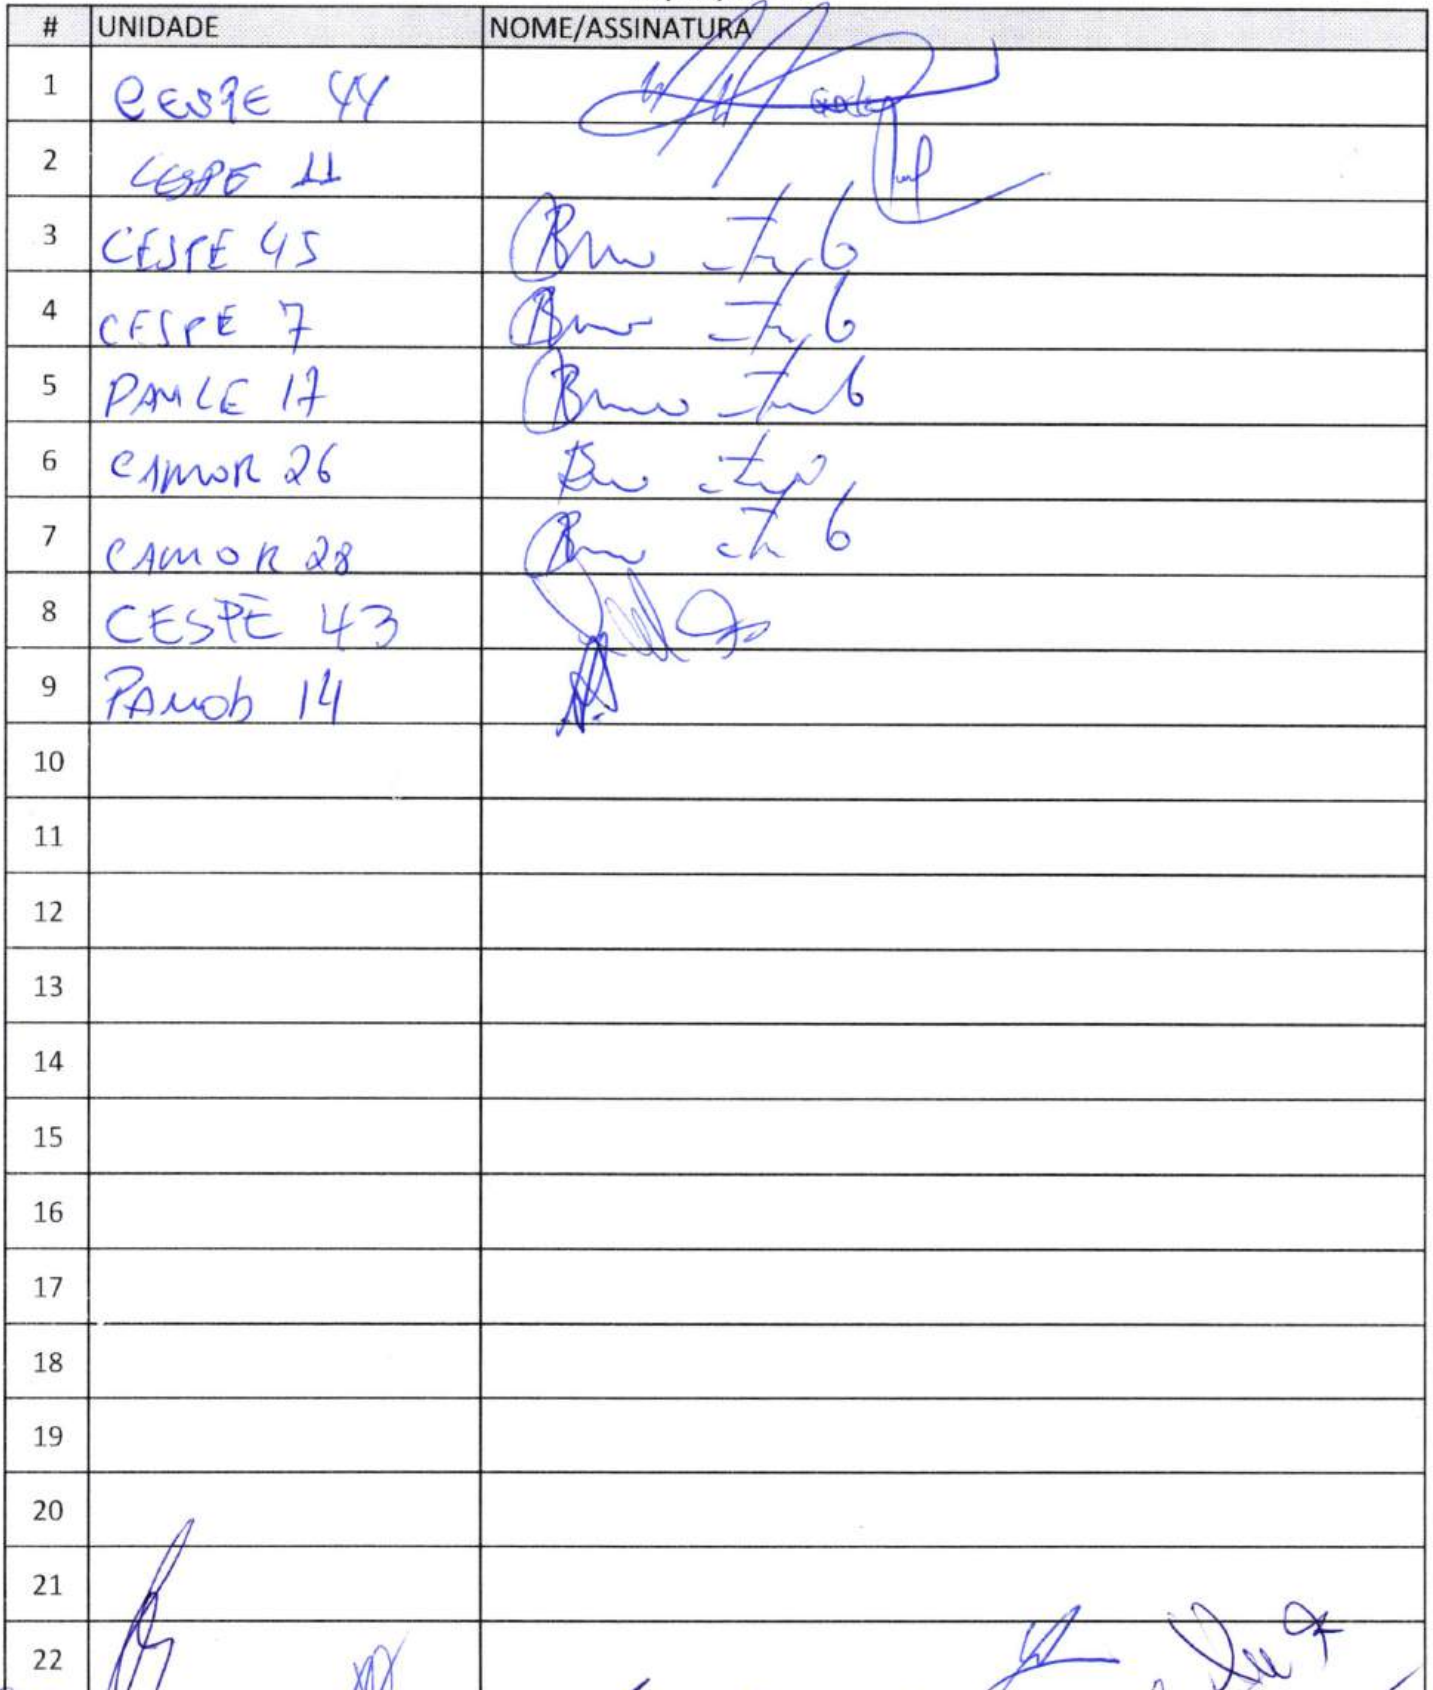 # UNIDADE NOME/ASSINATURA
1 CESPE 44
2 CESPE 11
3 CESPE 45 Bruno
4 CESPE 7 Bruno
5 PAMCE 17 Bruno
6 CAMOR 26
7 CAMOR 28 Bruno
8 CESPE 43
9 PAMOB 14
10
11
12
13
14
15
16
17
18
19
20
21
22